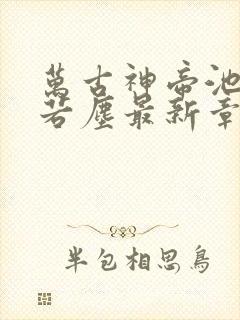 萬古神帝池
若塵最新章
半包相思鳥